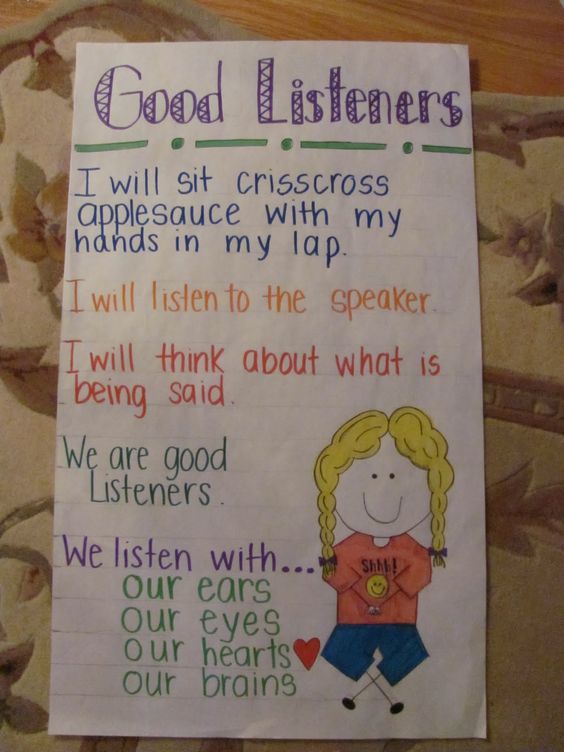 Good Listeners
I will sit crisscross
applesauce with my
hands in my lap.
I will listen to the speaker.
I will think about what is
being said.
We are good
Listeners.
We listen with...
our ears
our eyes
our hearts
our brains
Shhh!